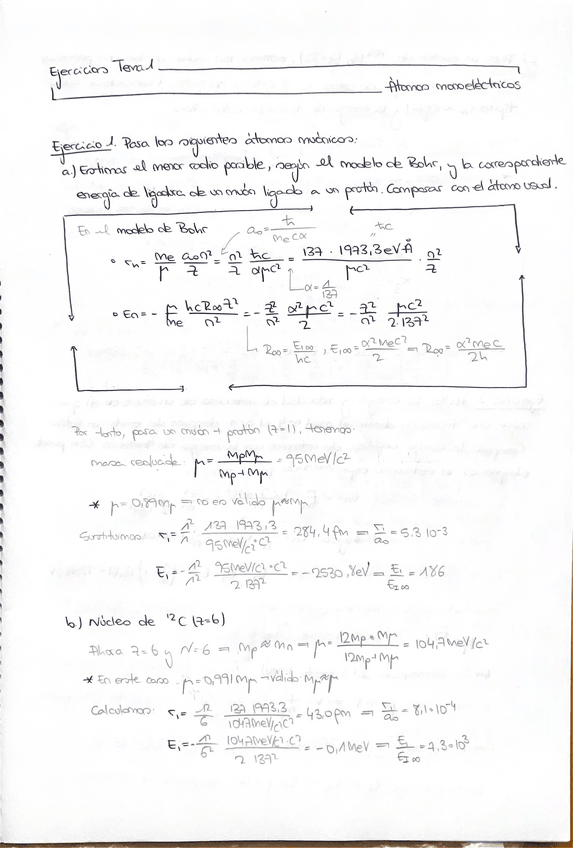 Ejercicios Tema 1
Átomos monoeléctricos
Ejercicio 1. Para los siguientes átomos muónicos:
a.) Estimas el menor radio posible, según el modelo de Bohr, y la correspondiente
energía de ligadura de un muón ligado a un protón. Comparar con el átomo usual.
En el modelo de Bohr a₀ = ħ/(mₑcα) ħc
∘ rₙ = (mₑ/μ) (a₀n²/Z) = (n²/Z) (ħc/(αμc²)) = (137 · 1973,3 eV Å)/(μc²) · n²/Z
α = 1/137
∘ Eₙ = - (μ/mₑ) (hcR∞Z²/n²) = - (Z²/n²) (α²μc²/2) = - (Z²/n²) (μc²/(2·137²))
R∞ = E₁∞/hc , E₁∞ = α²mₑc²/2 ⇒ R∞ = α²mₑc/2h
Por tanto, para un muón + protón (Z=1), tenemos:
masa reducida: μ = MpMμ/(Mp+Mμ) = 95 MeV/c²
* μ = 0,89Mμ ⇒ no es válido μ≈Mμ
Sustituimos: r₁ = (1²/1) (137 1973,3)/(95MeV/c²·c²) = 284,4 fm ⇒ r₁/a₀ = 5.3·10⁻³
E₁ = - (1²/1²) (95MeV/c²·c²)/(2 137²) = -2530,8eV ⇒ E₁/E₁∞ = 186
b.) Núcleo de ¹²C (Z=6)
Ahora Z=6 y N=6 ⇒ Mp≈Mn ⇒ μ = (12Mp·Mμ)/(12Mp+Mμ) = 104,7 MeV/c²
* En este caso μ=0,991Mμ → válido Mμ≈μ
Calculamos: r₁ = (1²/6) (137 1973,3)/(104,7MeV/c²·c²) = 43.0 fm ⇒ r₁/a₀ = 8,1·10⁻⁴
E₁ = - (1²/6²) (104,7MeV/c²·c²)/(2 137²) = -0,1 MeV ⇒ E₁/E₁∞ = 7.3·10³